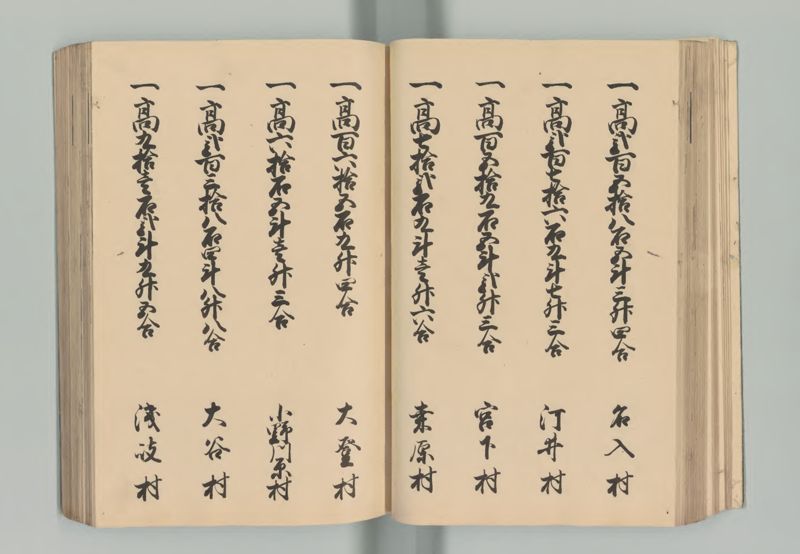 一高弐百五拾八石五斗三升四合 名入村
一高弐百七拾六石九斗七升三合 河井村
一高百五拾九石五斗弐升三合 宮下村
一高七拾弐石九斗壱升六合 桑原村
一高百六拾五石九升四合 大登村
一高六拾石五斗壱升三合 小野川原村
一高弐百三拾八石四斗八升八合 大谷村
一高九拾壱石弐斗九升五合 浅岐村